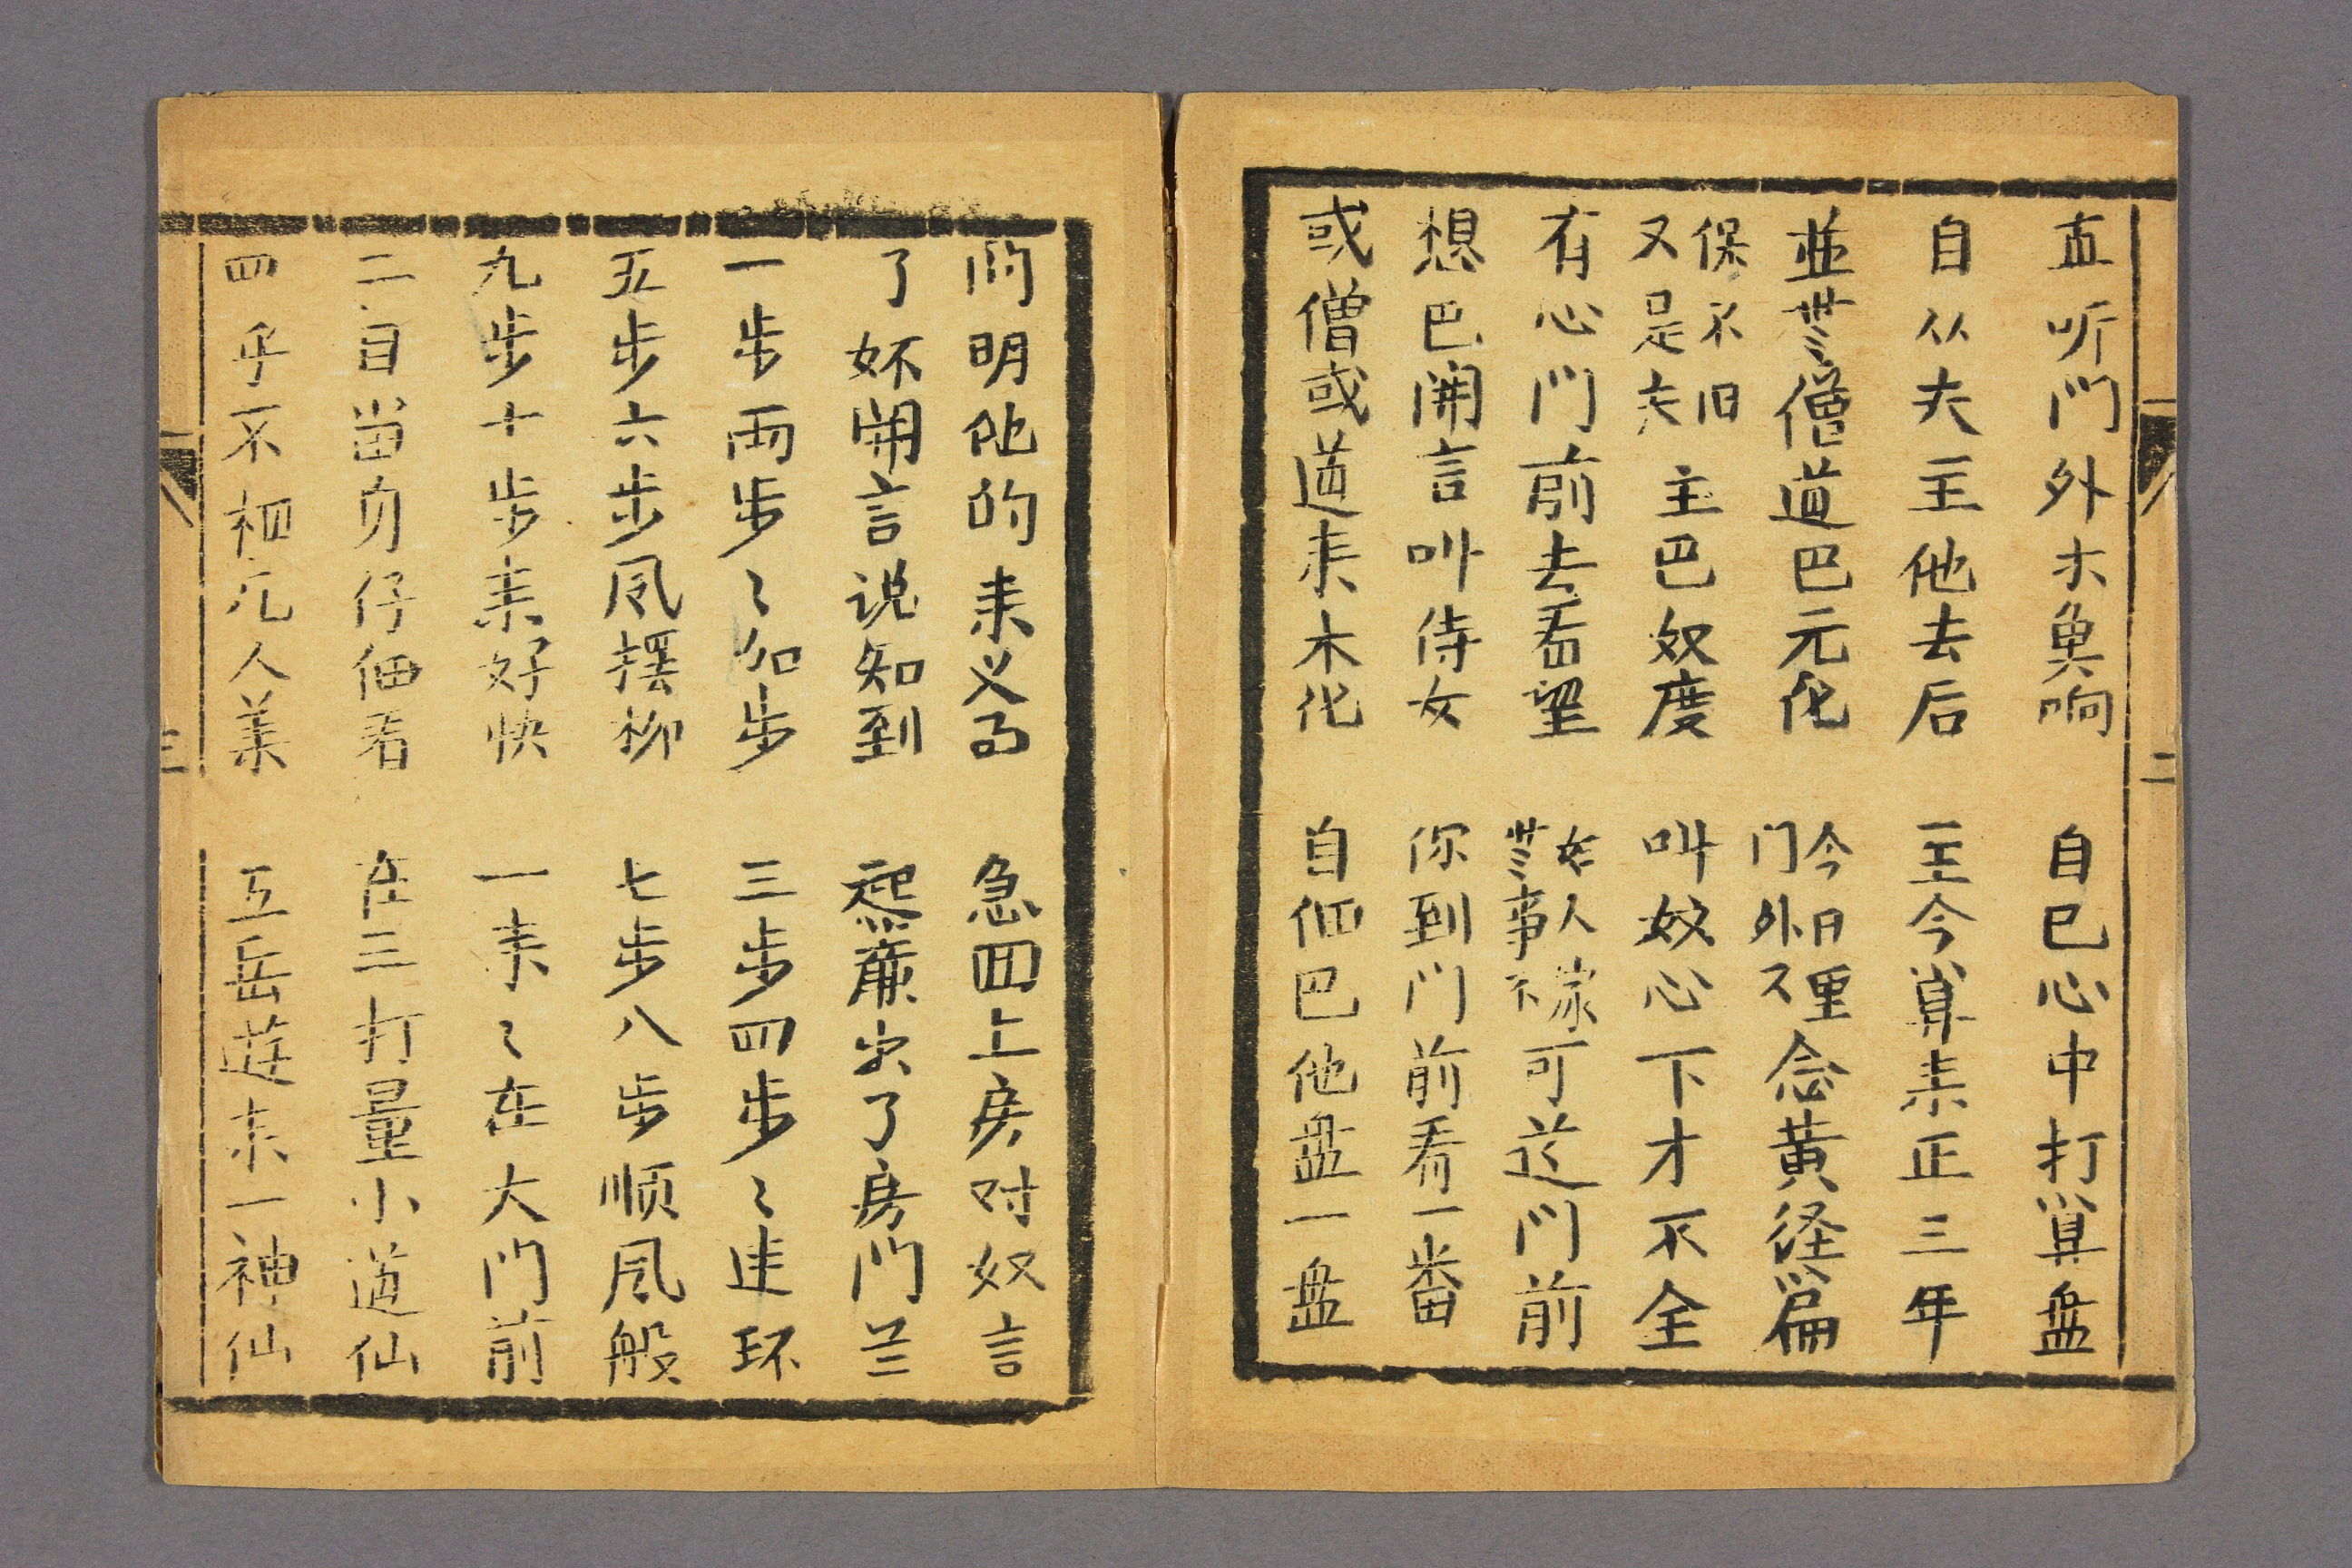 直听门外木魚响 自己心中打算盘
自从夫主他去后 至今算来正三年
並無僧道巴元化 今日門外不里念黄径篇
保不旧又是夫主巴奴度 叫奴心下才不全
有心门前去看望 女人無事不家可近门前
想巴開言叫侍女 你到门前看一番
或僧或道来木化 自個巴他盘一盘
问明他的来义了 急回上房对奴言
了环開言说知到 廉出了房门兰
一步两步〻扣步 三步四步〻進环
五步六步風摆柳 七步八步顺風般
九步十步来好快 一来〻在大门前
二目留勿仔佃看 在三打量小道仙
四乎不相凡人美 五岳遊来一神仙
二
三